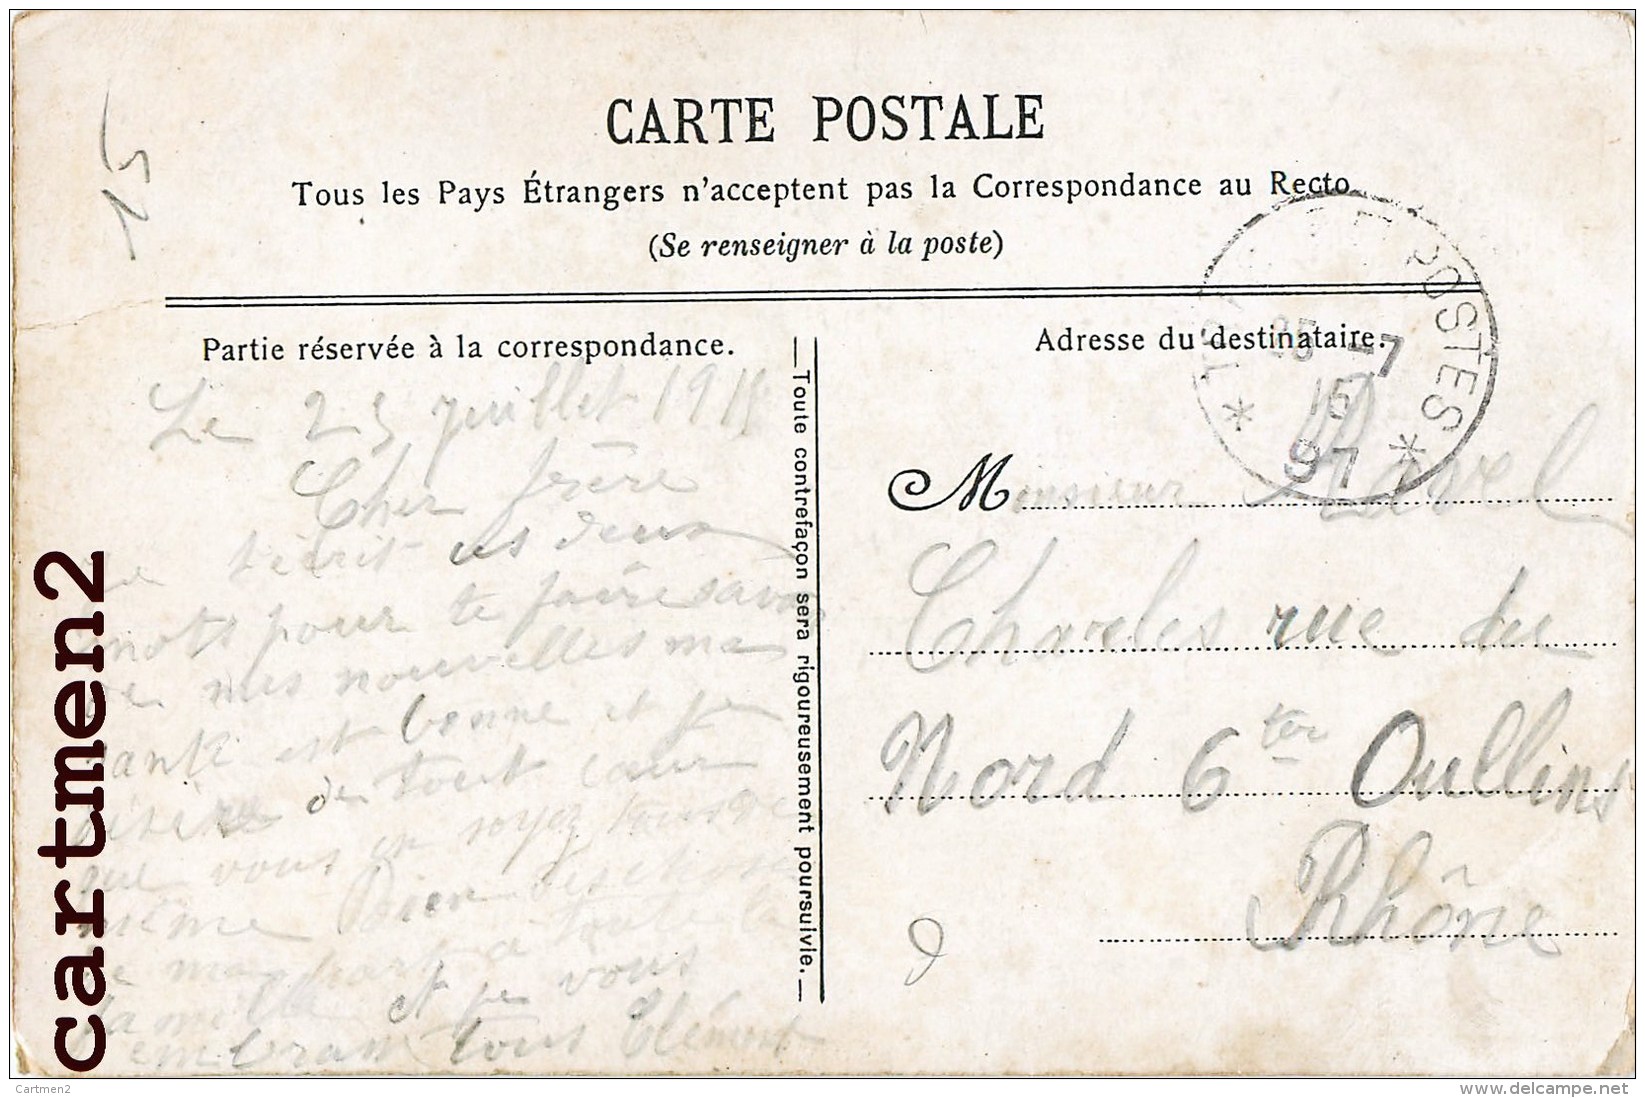 CARTE POSTALE
Tous les Pays Étrangers n'acceptent pas la Correspondance au Recto
(Se renseigner à la poste)
Partie réservée à la correspondance.
Le 25 juillet 191
Cher frère
Je t'écrit ces deux
mots pour te faire savoir
de mes nouvelles ma
santé est bonne et je
désire de tout cœur
que vous en soyez tous de
même Bien des choses
de ma part à toute la
famille et je vous
embrasse tous Clément
—Toute contrefaçon sera rigoureusement poursuivie.—
Adresse du destinataire.
POSTES
25 -7
15
97
Monsieur Ravel
Charles rue du
Nord 6 ter Oullins
Rhône
15
cartmen2
Cartmen2
www.delcampe.net